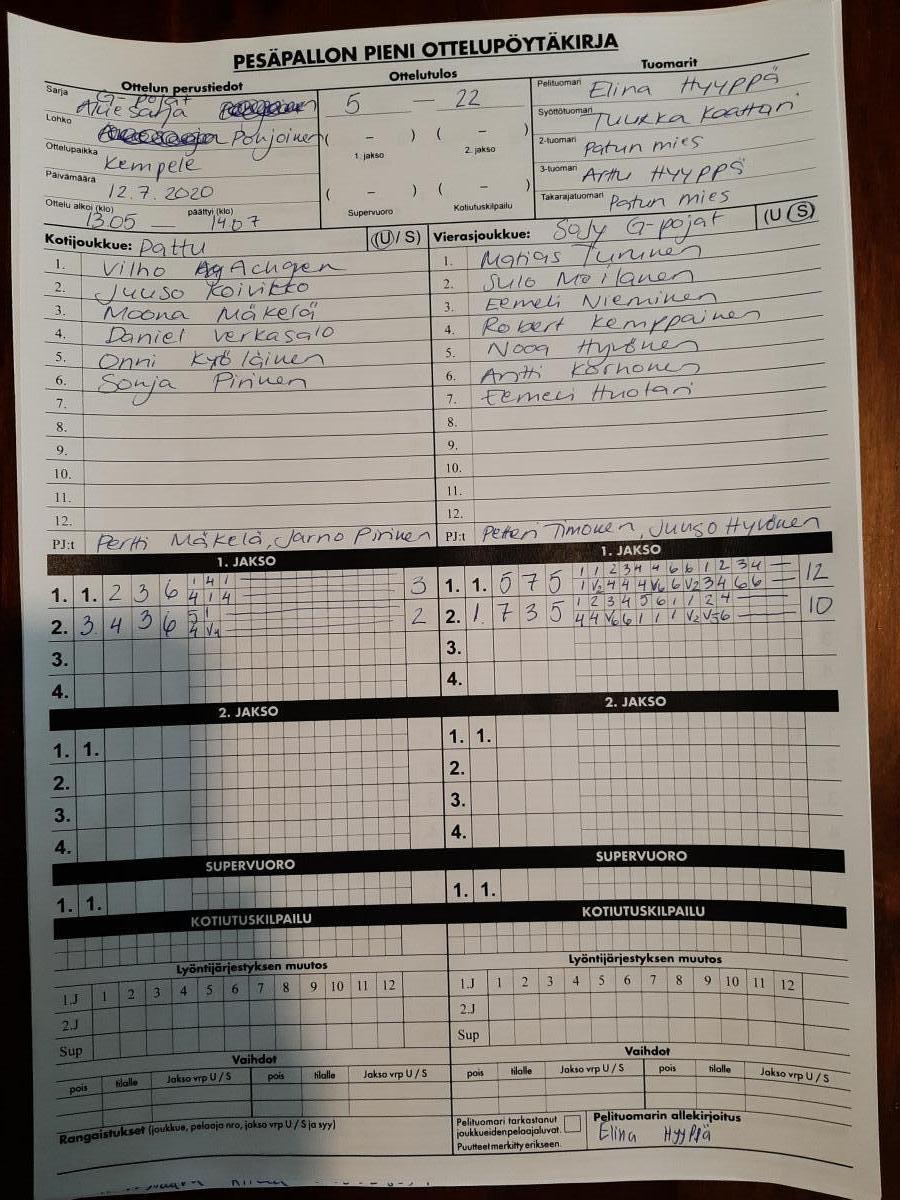 PESÄPALLON PIENI OTTELUPÖYTÄKIRJA
Ottelun perustiedot
Sarja G-pojat
Aluesarja
Lohko Pohjoinen
Ottelupaikka Kempele
Päivämäärä 12.7.2020
Ottelu alkoi (klo) 13.05 — päättyi (klo) 14.07
Ottelutulos
5 — 22
( – ) ( – )
1. jakso 2. jakso
( – ) ( – )
Supervuoro Kotiutuskilpailu
Tuomarit
Pelituomari Elina Hyyppä
Syöttötuomari Tuukka Kaattari
2-tuomari Patun mies
3-tuomari Arttu Hyyppä
Takarajatuomari Patun mies
Kotijoukkue: Pattu (U / S)
1. Vilho Achrén
2. Juuso Koivikko
3. Moona Mäkelä
4. Daniel Verkasalo
5. Onni Kyöläinen
6. Sonja Pirinen
7.
8.
9.
10.
11.
12.
PJ:t Pertti Mäkelä, Jarno Pirinen
Vierasjoukkue: SoJy G-pojat (U / S)
1. Matias Turunen
2. Sulo Moilanen
3. Eemeli Nieminen
4. Robert Kemppainen
5. Nooa Hyvönen
6. Antti Korhonen
7. Eemeli Huotari
8.
9.
10.
11.
12.
PJ:t Petteri Timonen, Juuso Hyvönen
1. JAKSO
1. 1. 2 3 6 1 4 1 3
4 1 4
2. 3. 4 3 6 5 1 2
4 V1
3.
4.
1. JAKSO
1. 1. 5 7 5 1 1 2 3 4 4 6 6 1 2 3 4 12
1 V2 4 4 4 V6 6 V2 3 4 6 6
2. 1. 7 3 5 1 2 3 4 5 6 1 1 2 4 10
4 4 V6 6 1 1 1 V2 V5 6
3.
4.
2. JAKSO
1. 1.
2.
3.
4.
2. JAKSO
1. 1.
2.
3.
4.
SUPERVUORO
1. 1.
SUPERVUORO
1. 1.
KOTIUTUSKILPAILU
KOTIUTUSKILPAILU
Lyöntijärjestyksen muutos
1.J 1 2 3 4 5 6 7 8 9 10 11 12
2.J
Sup
Lyöntijärjestyksen muutos
1.J 1 2 3 4 5 6 7 8 9 10 11 12
2.J
Sup
Vaihdot
pois tilalle Jakso vrp U / S pois tilalle Jakso vrp U / S
Vaihdot
pois tilalle Jakso vrp U / S pois tilalle Jakso vrp U / S
Rangaistukset (joukkue, pelaaja nro, jakso vrp U / S ja syy)
Pelituomari tarkastanut
joukkueiden pelaajaluvat.
Puutteet merkitty erikseen.
Pelituomarin allekirjoitus
Elina Hyyppä